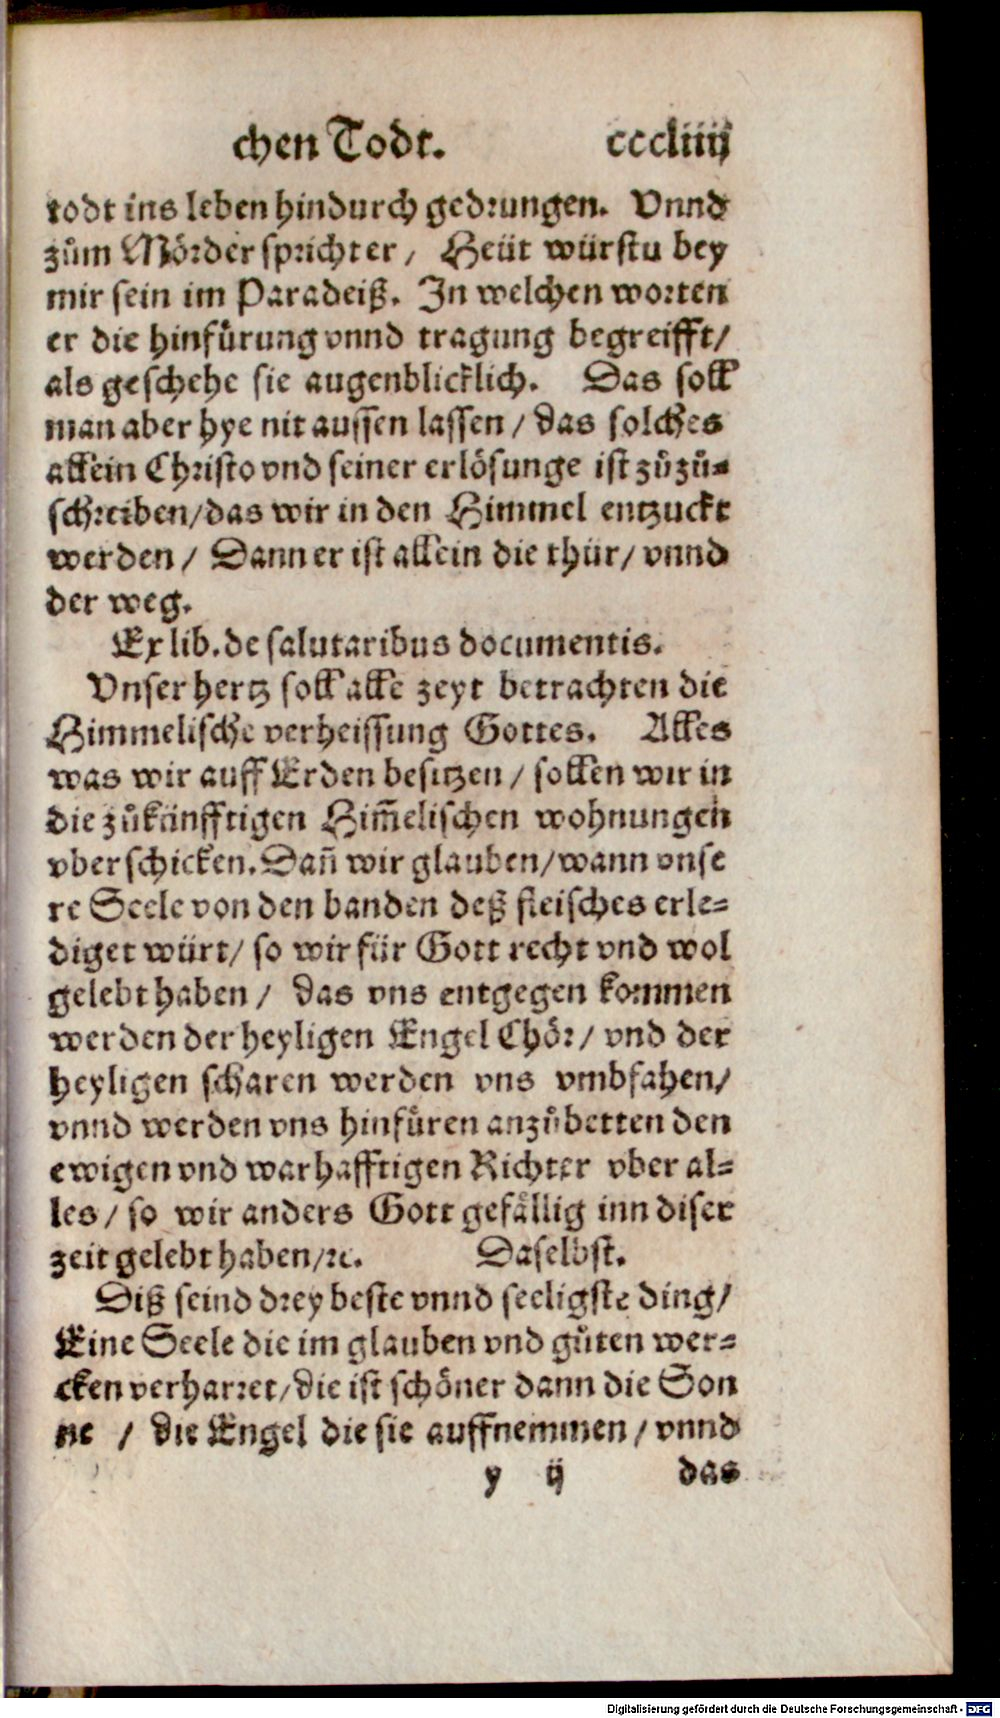 chen Todt. cccliiij
todt ins leben hindurch gedrungen. Vnnd
zům Mörder sprichter / Heüt würstu bey
mir sein im Paradeiß. In welchen worten
er die hinfůrung vnnd tragung begreifft/
als geschehe sie augenblicklich. Das soll
man aber hye nit aussen lassen / das solches
allein Christo vnd seiner erlösunge ist zůzů=
schreiben/das wir in den Himmel entzuckt
werden / Dann er ist allein die thür/ vnnd
der weg.
Ex lib. de salutaribus documentis.
Vnser hertz soll alle zeyt betrachten die
Himmelische verheissung Gottes. Alles
was wir auff Erden besitzen / sollen wir in
die zůkünfftigen Him̃elischen wohnungen
vberschicken. Dañ wir glauben/wann vnse
re Seele von den banden deß fleisches erle=
diget würt/ so wir für Gott recht vnd wol
gelebt haben / das vns entgegen kommen
werden der heyligen Engel Chör/ vnd der
heyligen scharen werden vns vmbfahen/
vnnd werden vns hinfůren anzůbetten den
ewigen vnd warhafftigen Richter vber al=
les / so wir anders Gott gefällig inn diser
zeit gelebt haben/ꝛc. Daselbst.
Diß seind drey beste vnnd seeligste ding/
Eine Seele die im glauben vnd gůten wer=
cken verharret/die ist schöner dann die Son
ne / die Engel die sie auffnemmen / vnnd
y ij das
Digitalisierung gefördert durch die Deutsche Forschungsgemeinschaft - DFG